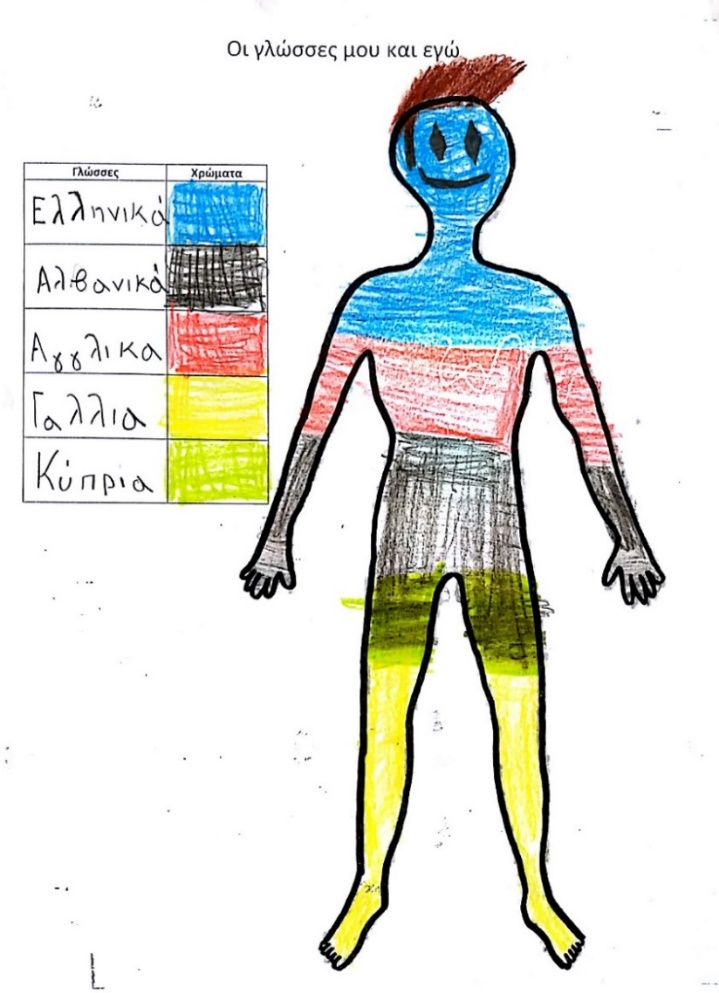 Οι γλώσσες μου και εγώ
Γλώσσες Χρώματα
Ελληνικά
Αλβανικά
Αγγλικα
Γαλλια
Κύπρια